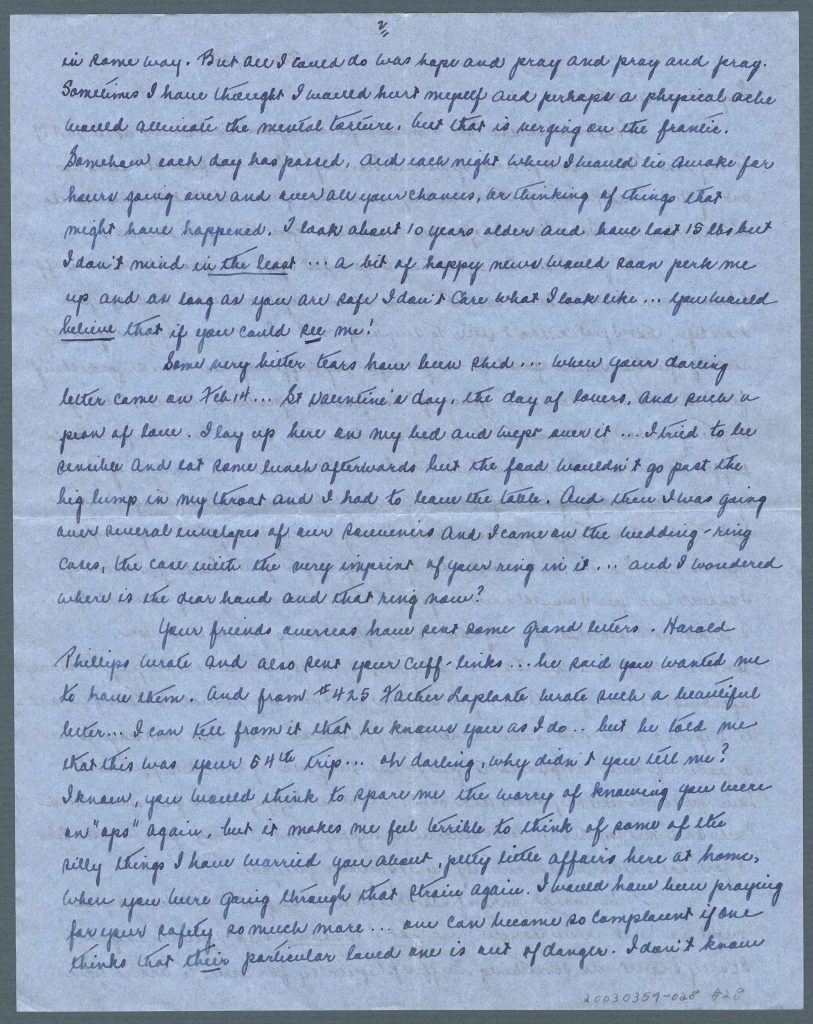 2
in some way. But all I could do was hope and pray and pray and pray.
Sometimes I have thought I would hurt myself and perhaps a physical ache
would alleviate the mental torture, but that is verging on the frantic.
Somehow each day has passed, and each night when I would lie awake for
hours going over and over all your chances, or thinking of things that
might have happened. I look about 10 years older and have lost 15 lbs but
I don't mind in the least ... a bit of happy news would soon perk me
up and as long as you are safe I don't care what I look like ... you would
believe that if you could see me!
Some very bitter tears have been shed ... when your darling
letter came on Feb 14 ... St Valentine's day, the day of lovers, and such a
pean of love. I lay up here on my bed and wept over it ... I tried to be
sensible and eat some lunch afterwards but the food wouldn't go past the
big lump in my throat and I had to leave the table. And then I was going
over several envelopes of our souvenirs and I came on the wedding-ring
cases, the case with the very imprint of your ring in it ... and I wondered
where is the dear hand and that ring now?
Your friends overseas have sent some grand letters. Harold
Phillips wrote and also sent your cuff-links ... he said you wanted me
to have them. And from #425 Father Laplante wrote such a beautiful
letter ... I can tell from it that he knows you as I do .. but he told me
that this was your 54th trip ... oh darling, why didn't you tell me?
I know, you would think to spare me the worry of knowing you were
on "ops" again, but it makes me feel terrible to think of some of the
silly things I have worried you about, petty little affairs here at home,
when you were going through that strain again. I would have been praying
for your safety so much more ... one can become so complacent if one
thinks that their particular loved one is out of danger. I don't know
20030359-028 #28